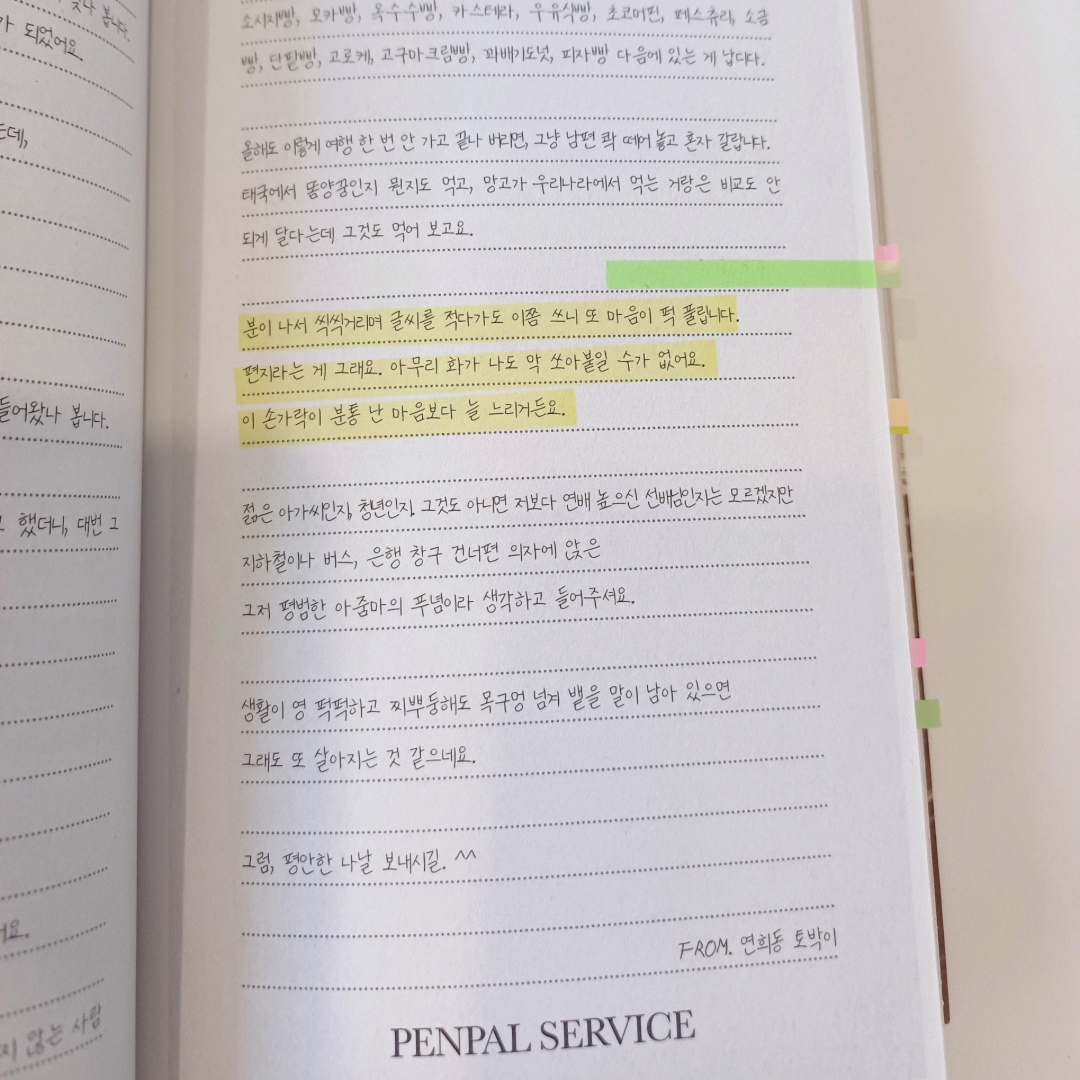 꽃나 봅니다.
가 되었어요.
는데,
들어왔나 봅니다.
했더니, 대번 그
어요.
지 않는 사람
소시지빵, 모카빵, 옥수수빵, 카스테라, 우유식빵, 초코머핀, 페스츄리, 소금
빵, 단팥빵, 고로케, 고구마크림빵, 꽈배기도넛, 피자빵 다음에 있는 게 납디다.
올해도 이렇게 여행 한 번 안 가고 끝나 버리면, 그냥 남편 콱 떼어 놓고 혼자 갈랍니다.
태국에서 똠양꿍인지 뭔지도 먹고, 망고가 우리나라에서 먹는 거랑은 비교도 안
되게 달다는데 그것도 먹어 보고요.
분이 나서 씩씩거리며 글씨를 적다가도 이쯤 쓰니 또 마음이 턱 풀립니다.
편지라는 게 그래요. 아무리 화가 나도 막 쏘아붙일 수가 없어요.
이 손가락이 분통 난 마음보다 늘 느리거든요.
젊은 아가씨인지, 청년인지, 그것도 아니면 저보다 연배 높으신 선배님인지는 모르겠지만
지하철이나 버스, 은행 창구 건너편 의자에 앉은
그저 평범한 아줌마의 푸념이라 생각하고 들어주셔요.
생활이 영 퍽퍽하고 찌뿌둥해도 목구멍 넘겨 뱉을 말이 남아 있으면
그래도 또 살아지는 것 같으네요.
그럼, 평안한 나날 보내시길. ^^
FROM. 연희동 토박이
PENPAL SERVICE